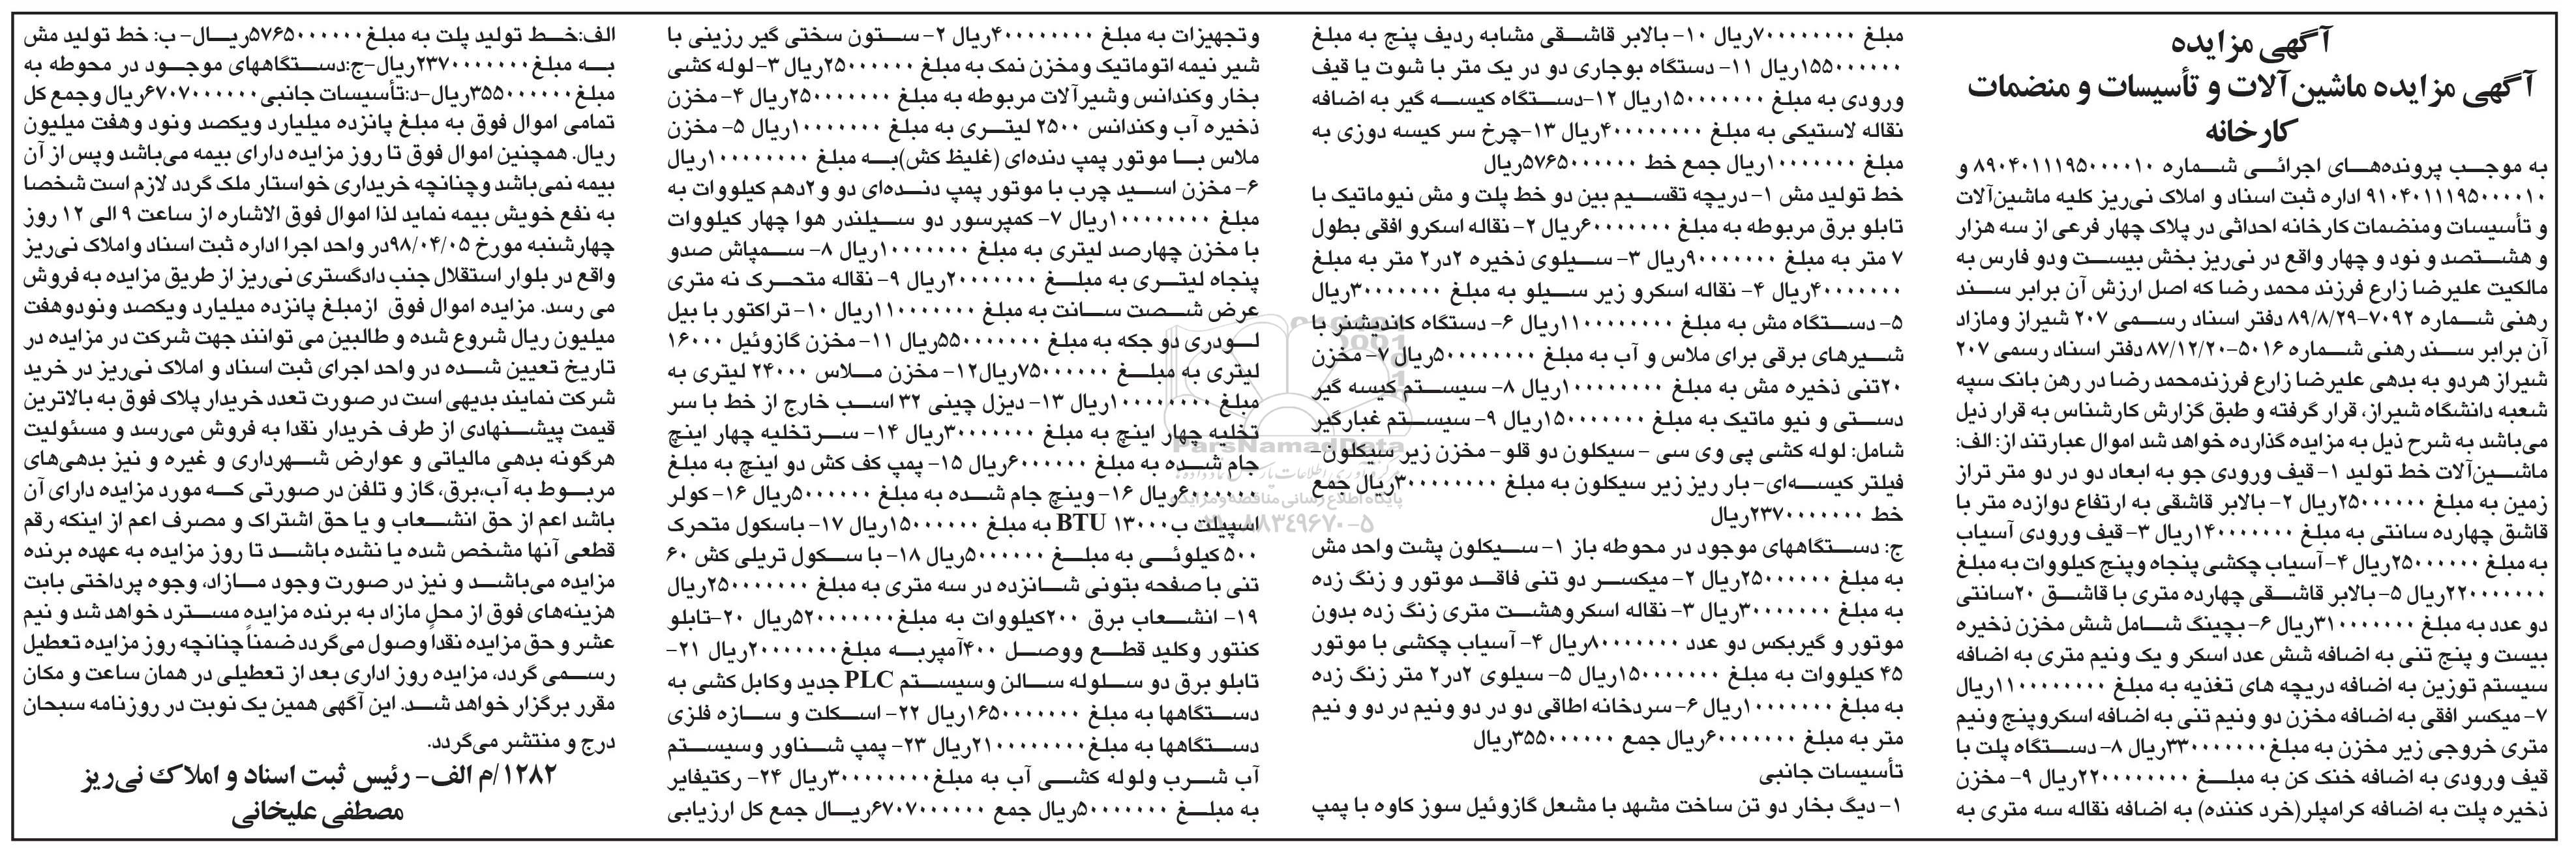 آگهی مزایده
آگهی مزایده ماشین‌آلات و تأسیسات و منضمات
کارخانه
به موجب پرونده‌های اجرائی شماره ۸۹۰۴۰۱۱۱۹۵۰۰۰۰۱۰ و
۹۱۰۴۰۱۱۱۹۵۰۰۰۰۱۰ اداره ثبت اسناد و املاک نی‌ریز کلیه ماشین‌آلات
و تأسیسات ومنضمات کارخانه احداثی در پلاک چهار فرعی از سه هزار
و هشتصد و نود و چهار واقع در نی‌ریز بخش بیست ودو فارس به
مالکیت علیرضا زارع فرزند محمد رضا که اصل ارزش آن برابر سند
رهنی شماره ۷۰۹۲-۸۹/۸/۲۹ دفتر اسناد رسمی ۲۰۷ شیراز ومازاد
آن برابر سند رهنی شماره ۵۰۱۶-۸۷/۱۲/۲۰ دفتر اسناد رسمی ۲۰۷
شیراز هردو به بدهی علیرضا زارع فرزندمحمد رضا در رهن بانک سپه
شعبه دانشگاه شیراز، قرار گرفته و طبق گزارش کارشناس به قرار ذیل
می‌باشد به شرح ذیل به مزایده گذارده خواهد شد اموال عبارتند از: الف:
ماشین‌آلات خط تولید ۱- قیف ورودی جو به ابعاد دو در دو متر تراز
زمین به مبلغ ۲۵۰۰۰۰۰۰ریال ۲- بالابر قاشقی به ارتفاع دوازده متر با
قاشق چهارده سانتی به مبلغ ۱۴۰۰۰۰۰۰۰ریال ۳- قیف ورودی آسیاب
به مبلغ ۲۵۰۰۰۰۰۰ریال ۴- آسیاب چکشی پنجاه وپنج کیلووات به مبلغ
۲۲۰۰۰۰۰۰۰ریال ۵- بالابر قاشقی چهارده متری با قاشق ۲۰سانتی
دو عدد به مبلغ ۳۱۰۰۰۰۰۰۰ریال ۶- بچینگ شامل شش مخزن ذخیره
بیست و پنج تنی به اضافه شش عدد اسکر و یک ونیم متری به اضافه
سیستم توزین به اضافه دریچه های تغذیه به مبلغ ۱۱۰۰۰۰۰۰۰۰ریال
۷- میکسر افقی به اضافه مخزن دو ونیم تنی به اضافه اسکروپنج ونیم
متری خروجی زیر مخزن به مبلغ۳۳۰۰۰۰۰۰۰ریال ۸- دستگاه پلت با
قیف ورودی به اضافه خنک کن به مبلغ ۲۲۰۰۰۰۰۰۰۰ریال ۹- مخزن
ذخیره پلت به اضافه کرامپلر(خرد کننده) به اضافه نقاله سه متری به
مبلغ ۷۰۰۰۰۰۰۰۰ریال ۱۰- بالابر قاشقی مشابه ردیف پنج به مبلغ
۱۵۵۰۰۰۰۰۰ریال ۱۱- دستگاه بوجاری دو در یک متر با شوت یا قیف
ورودی به مبلغ ۱۵۰۰۰۰۰۰۰ریال ۱۲-دستگاه کیسه گیر به اضافه
نقاله لاستیکی به مبلغ ۴۰۰۰۰۰۰۰۰ریال ۱۳-چرخ سر کیسه دوزی به
مبلغ ۱۰۰۰۰۰۰۰ریال جمع خط ۵۷۶۵۰۰۰۰۰۰ریال
خط تولید مش ۱- دریچه تقسیم بین دو خط پلت و مش نیوماتیک با
تابلو برق مربوطه به مبلغ ۶۰۰۰۰۰۰۰ریال ۲- نقاله اسکرو افقی بطول
۷ متر به مبلغ ۹۰۰۰۰۰۰۰ریال ۳- سیلوی ذخیره ۲در۲ متر به مبلغ
۴۰۰۰۰۰۰۰ریال ۴- نقاله اسکرو زیر سیلو به مبلغ ۳۰۰۰۰۰۰۰ریال
۵- دستگاه مش به مبلغ ۱۱۰۰۰۰۰۰۰۰ریال ۶- دستگاه کاندیشنر با
شیرهای برقی برای ملاس و آب به مبلغ ۵۰۰۰۰۰۰۰۰ریال ۷- مخزن
۲۰تنی ذخیره مش به مبلغ ۱۰۰۰۰۰۰۰۰ریال ۸- سیستم کیسه گیر
دستی و نیو ماتیک به مبلغ ۱۵۰۰۰۰۰۰۰ریال ۹- سیستم غبارگیر
شامل: لوله کشی پی وی سی - سیکلون دو قلو- مخزن زیر سیکلون-
فیلتر کیسه‌ای- بار ریز زیر سیکلون به مبلغ ۳۰۰۰۰۰۰۰۰ریال جمع
خط ۲۳۷۰۰۰۰۰۰۰ریال
ج: دستگاههای موجود در محوطه باز ۱- سیکلون پشت واحد مش
به مبلغ ۲۵۰۰۰۰۰۰ریال ۲- میکسر دو تنی فاقد موتور و زنگ زده
به مبلغ ۳۰۰۰۰۰۰۰ریال ۳- نقاله اسکروهشت متری زنگ زده بدون
موتور و گیربکس دو عدد ۸۰۰۰۰۰۰۰ریال ۴- آسیاب چکشی با موتور
۴۵ کیلووات به مبلغ ۱۵۰۰۰۰۰۰۰ریال ۵- سیلوی ۲در۲ متر زنگ زده
به مبلغ ۱۰۰۰۰۰۰۰ریال ۶- سردخانه اطاقی دو در دو ونیم در دو و نیم
متر به مبلغ ۶۰۰۰۰۰۰۰ریال جمع ۳۵۵۰۰۰۰۰۰ریال
تأسیسات جانبی
۱- دیگ بخار دو تن ساخت مشهد با مشعل گازوئیل سوز کاوه با پمپ
وتجهیزات به مبلغ ۴۰۰۰۰۰۰۰۰ریال ۲- ستون سختی گیر رزینی با
شیر نیمه اتوماتیک ومخزن نمک به مبلغ ۲۵۰۰۰۰۰۰ریال ۳-لوله کشی
بخار وکندانس وشیرآلات مربوطه به مبلغ ۲۵۰۰۰۰۰۰۰ریال ۴- مخزن
ذخیره آب وکندانس ۲۵۰۰ لیتری به مبلغ ۱۰۰۰۰۰۰۰ریال ۵- مخزن
ملاس با موتور پمپ دنده‌ای (غلیظ کش)به مبلغ ۱۰۰۰۰۰۰۰۰ریال
۶- مخزن اسید چرب با موتور پمپ دنده‌ای دو و۲دهم کیلووات به
مبلغ ۱۰۰۰۰۰۰۰۰ریال ۷- کمپرسور دو سیلندر هوا چهار کیلووات
با مخزن چهارصد لیتری به مبلغ ۱۰۰۰۰۰۰۰ریال ۸- سمپاش صدو
پنجاه لیتری به مبلغ ۲۰۰۰۰۰۰۰ریال ۹- نقاله متحرک نه متری
عرض شصت سانت به مبلغ ۱۱۰۰۰۰۰۰۰ریال ۱۰- تراکتور با بیل
لودری دو جکه به مبلغ ۵۵۰۰۰۰۰۰۰ریال ۱۱- مخزن گازوئیل ۱۶۰۰۰
لیتری به مبلغ ۷۵۰۰۰۰۰۰ریال۱۲- مخزن ملاس ۲۴۰۰۰ لیتری به
مبلغ ۱۰۰۰۰۰۰۰۰ریال ۱۳- دیزل چینی ۳۲ اسب خارج از خط با سر
تخلیه چهار اینچ به مبلغ ۳۰۰۰۰۰۰۰ریال ۱۴- سرتخلیه چهار اینچ
جام شده به مبلغ ۶۰۰۰۰۰۰ریال ۱۵- پمپ کف کش دو اینچ به مبلغ
۶۰۰۰۰۰۰ریال ۱۶- وینچ جام شده به مبلغ ۵۰۰۰۰۰۰ریال ۱۶- کولر
اسپیلت ب۱۳۰۰۰ BTU به مبلغ ۱۵۰۰۰۰۰۰ریال ۱۷- باسکول متحرک
۵۰۰ کیلوئی به مبلغ ۵۰۰۰۰۰۰ریال ۱۸- با سکول تریلی کش ۶۰
تنی با صفحه بتونی شانزده در سه متری به مبلغ ۲۵۰۰۰۰۰۰۰ریال
۱۹- انشعاب برق ۲۰۰کیلووات به مبلغ۵۲۰۰۰۰۰۰۰ریال ۲۰-تابلو
کنتور وکلید قطع ووصل ۴۰۰آمپربه مبلغ۲۰۰۰۰۰۰۰ریال ۲۱-
تابلو برق دو سلوله سالن وسیستم PLC جدید وکابل کشی به
دستگاهها به مبلغ ۱۶۵۰۰۰۰۰۰۰ریال ۲۲- اسکلت و سازه فلزی
دستگاهها به مبلغ۲۱۰۰۰۰۰۰۰۰ریال ۲۳- پمپ شناور وسیستم
آب شرب ولوله کشی آب به مبلغ۳۰۰۰۰۰۰۰۰ریال ۲۴- رکتیفایر
به مبلغ ۵۰۰۰۰۰۰۰ریال جمع ۶۷۰۷۰۰۰۰۰۰ریال جمع کل ارزیابی
الف:خط تولید پلت به مبلغ۵۷۶۵۰۰۰۰۰۰ریال- ب: خط تولید مش
به مبلغ۲۳۷۰۰۰۰۰۰۰ریال-ج:دستگاههای موجود در محوطه به
مبلغ۳۵۵۰۰۰۰۰۰ریال-د:تأسیسات جانبی۶۷۰۷۰۰۰۰۰۰ریال وجمع کل
تمامی اموال فوق به مبلغ پانزده میلیارد ویکصد ونود وهفت میلیون
ریال. همچنین اموال فوق تا روز مزایده دارای بیمه می‌باشد وپس از آن
بیمه نمی‌باشد وچنانچه خریداری خواستار ملک گردد لازم است شخصا
به نفع خویش بیمه نماید لذا اموال فوق الاشاره از ساعت ۹ الی ۱۲ روز
چهارشنبه مورخ ۹۸/۰۴/۰۵در واحد اجرا اداره ثبت اسناد واملاک نی‌ریز
واقع در بلوار استقلال جنب دادگستری نی‌ریز از طریق مزایده به فروش
می رسد. مزایده اموال فوق ازمبلغ پانزده میلیارد ویکصد ونودوهفت
میلیون ریال شروع شده و طالبین می توانند جهت شرکت در مزایده در
تاریخ تعیین شده در واحد اجرای ثبت اسناد و املاک نی‌ریز در خرید
شرکت نمایند بدیهی است در صورت تعدد خریدار پلاک فوق به بالاترین
قیمت پیشنهادی از طرف خریدار نقدا به فروش می‌رسد و مسئولیت
هرگونه بدهی مالیاتی و عوارض شهرداری و غیره و نیز بدهی‌های
مربوط به آب،برق، گاز و تلفن در صورتی که مورد مزایده دارای آن
باشد اعم از حق انشعاب و یا حق اشتراک و مصرف اعم از اینکه رقم
قطعی آنها مشخص شده یا نشده باشد تا روز مزایده به عهده برنده
مزایده می‌باشد و نیز در صورت وجود مازاد، وجوه پرداختی بابت
هزینه‌های فوق از محل مازاد به برنده مزایده مسترد خواهد شد و نیم
عشر و حق مزایده نقداً وصول می‌گردد ضمناً چنانچه روز مزایده تعطیل
رسمی گردد، مزایده روز اداری بعد از تعطیلی در همان ساعت و مکان
مقرر برگزار خواهد شد. این آگهی همین یک نوبت در روزنامه سبحان
درج و منتشر می‌گردد.
۱۲۸۲/م الف- رئیس ثبت اسناد و املاک نی‌ریز
مصطفی علیخانی
ParsNamadData
پایگاه اطلاع رسانی مناقصه و مزایده